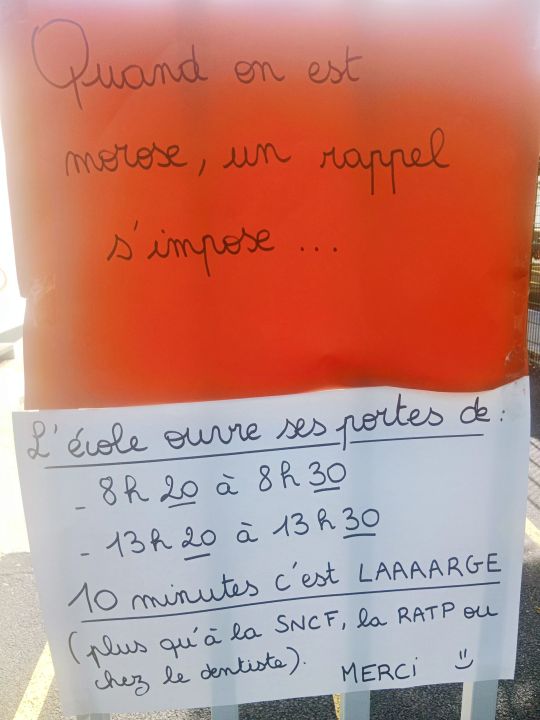 Quand on est
morose, un rappel
s'impose ...
L'école ouvre ses portes de :
- 8h 20 à 8h 30
- 13h 20 à 13h 30
10 minutes c'est LAAAARGE
(plus qu'à la SNCF, la RATP ou
chez le dentiste). MERCi